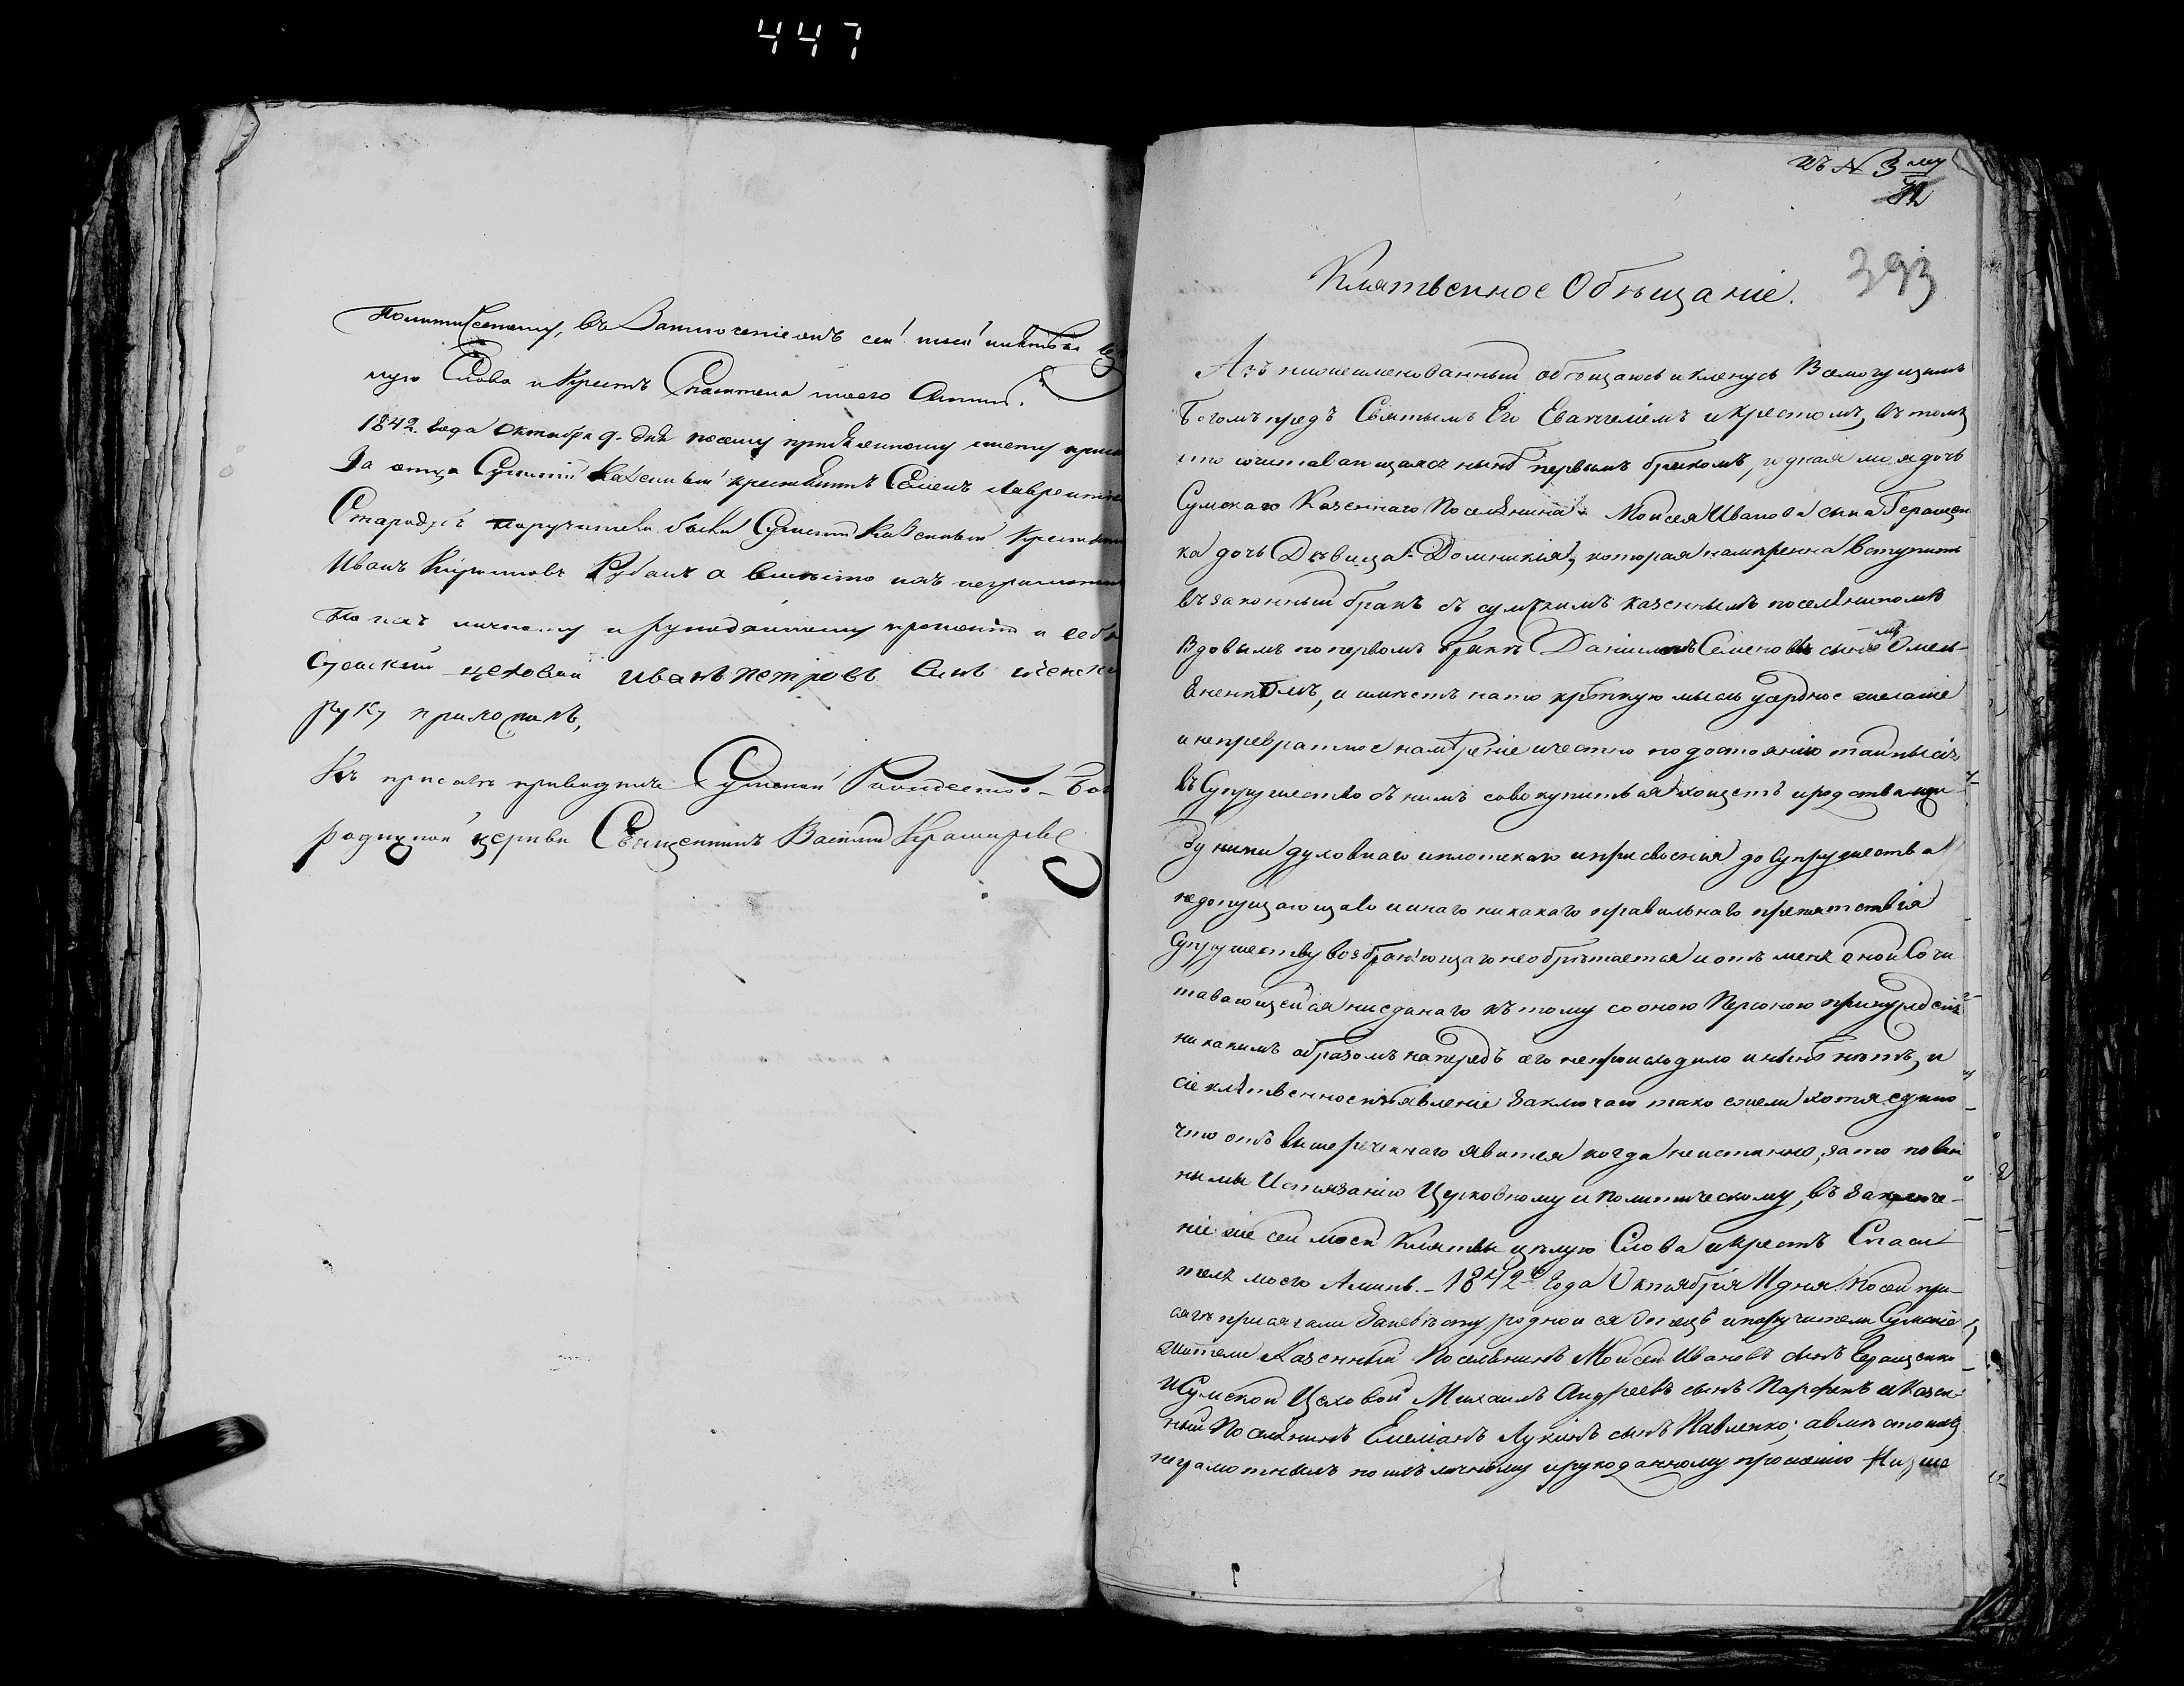 447
Политическому, въ Заключеніежъ сей моей клятвы цѣ
лую Слова и Крестъ Спасителя моего Аминь.
1842. Года Октября 9. дня посему присяжному листу прися
За отца Сумскій Казенный крестьянинъ Семенъ Лаврентіев
Стародубъ поручители были Сумскій Казенный Крестьянин
Иванъ Рубанъ а вмѣсто ихъ неграмотных
По ихъ личному и рукоданному прошенію и себя
Сумский цеховой Иванъ Петровъ Синъ
руку приложилъ,
Къ присягѣ приводилъ Сумской Рождество-Бого
родичной церкви Священникъ Василій
Къ № 3му
72
393
Клятвенное Обѣщаніе.
Азъ нижеименованный обѣщаюсь и кленусь Всемогущимъ
Богомъ предъ Святымъ Его Евангеліемъ и крестомъ, въ томъ
что сочитавающаяся нынѣ первымъ бракомъ, родная моя дочь
Сумскаго Казеннаго Поселянина Моисея Иванова сына Геращен
ка дочь Дѣвица Домникія, которая намѣренна вступить
въ законный бракъ съ сумскимъ казеннымъ поселяниномъ
Вдовымъ по первомъ бракѣ Даниломъ Семеновымъ сыномъ Омель
яненкомъ, и имѣетъ на то крѣпкую мысль усердное желаніе
и непревратное намѣреніе и честно по достоянію тайны сія
въ Супружество съ нимъ совокупиться хощетъ и родства меж
ду ними духовнаго и плотскаго и присвоенія до Супружества
недопущающаго и инаго никакаго правильнаго препятствія
Супружеству возбраняющаго необрѣтается и отъ меня оной Сочи
тавающейся ниеданаго къ тому со оною Персоною принужденія
никакимъ образомъ напредъ сего непроисходило и нынѣ нѣтъ, и
сіе клятвенное объявленіе Заключаю тако ежели хотя едино
что отъ вышереченнаго явится когда неистинно, за то повин
нымы Истязанію Церковному и политическому, въ Заключе-
ніе же сей моей Клятвы цѣлую Слова и Крестъ Спаси
теля моего Аминь. - 1842го Года Октября 11 дня. По сей при-
сягѣ присягали За невѣсту родной ея отецъ и поручители Сумскіе
жители Казенный Поселянинъ Мойсей Ивановъ сынъ Геращенко
и Сумской Цеховой Михаилъ Андреевъ сынъ Парфенъ и Казен-
ный Поселянинъ Емеліанъ Лукинъ сынъ Павленко; а вмѣсто ихъ
неграмотныхъ по ихъ личному и рукоданному прошенію Ниже